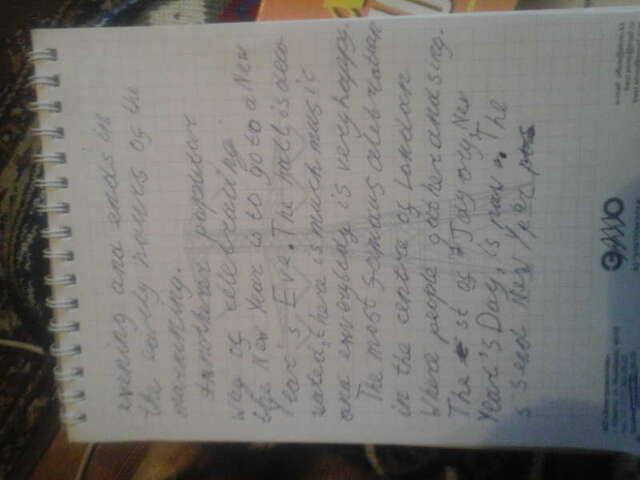 evening and ends in
the early hours of the
mornining.
Annotherer popular
way of celebrating
the New Year is to go to a New
Year's Eve. The hall is deco
rated, there is much music
and enverybody is very happy.
The most famous celebration
in the centre of London
Where people gather and sing.
The st of
Year's Day, is
The
s Send New Year
ЭЛМО